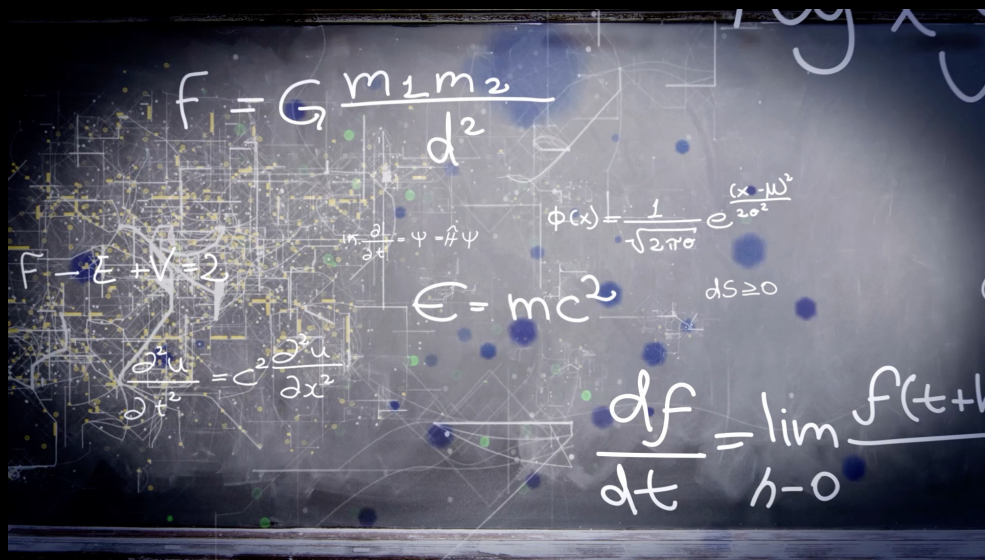 log x y
F = G m1m2/d²
ϕ(x) = 1/√2πσ e^(x-μ)²/2σ²
iħ ∂/∂t = Ψ = ĤΨ
F - E + V = 2
E = mc²
dS ≥ 0
∂²u/∂t² = c² ∂²u/∂x²
df/dt = lim h-0 f(t+h